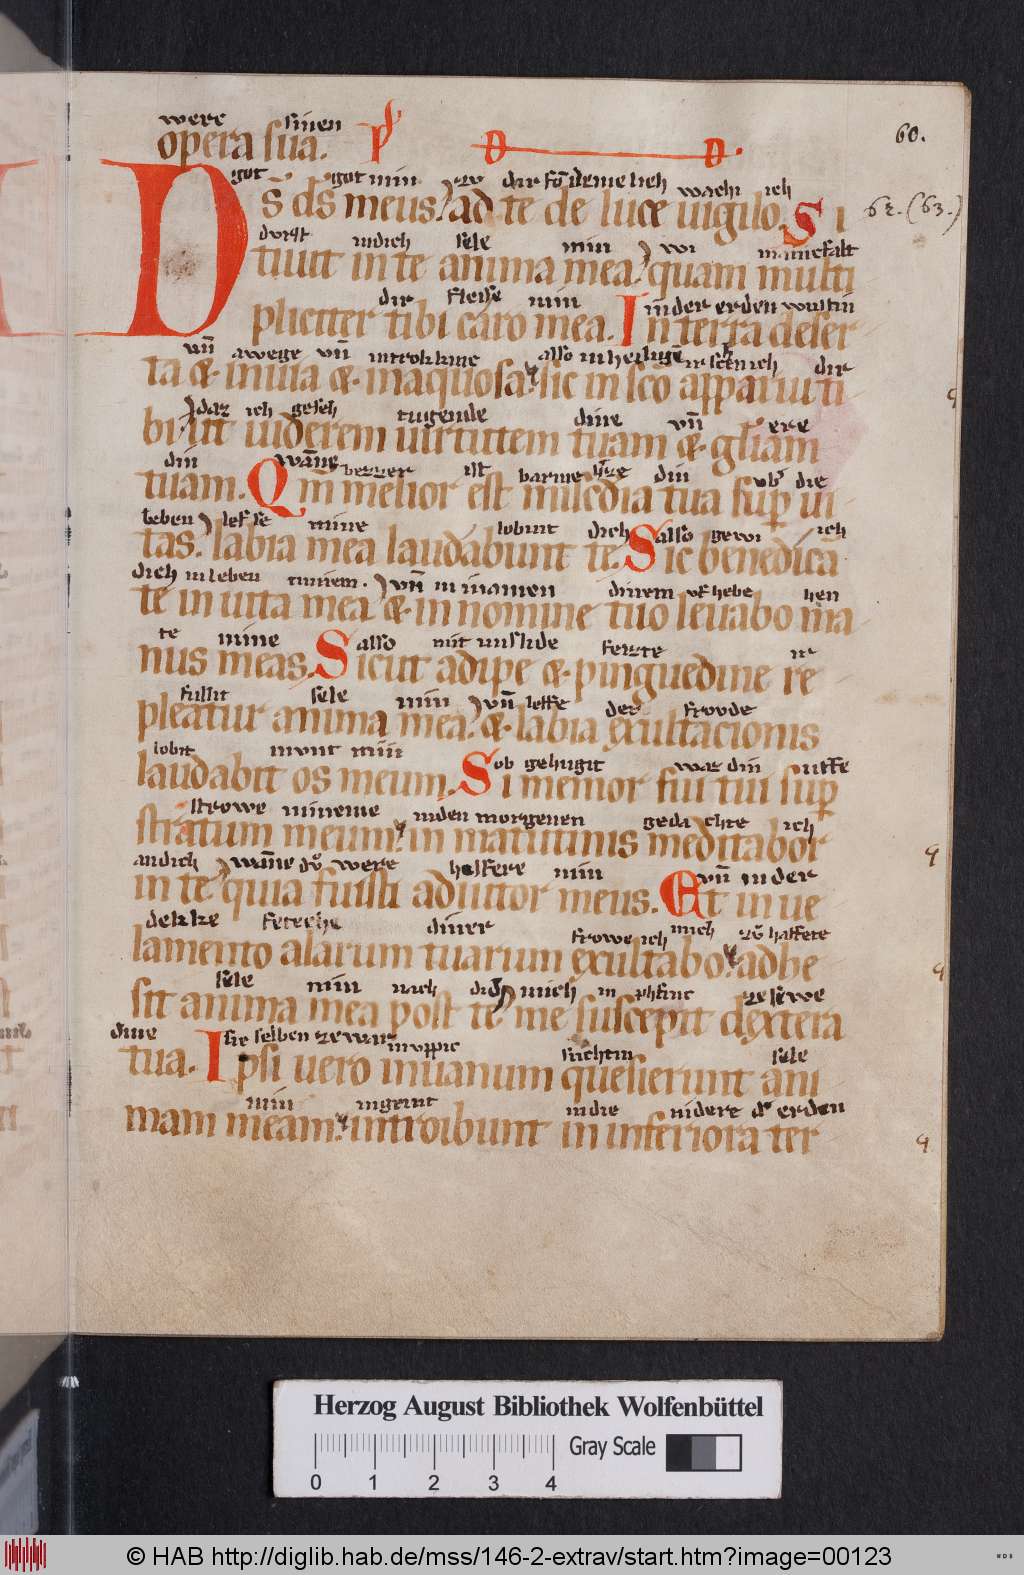 were sinen
opera sua. ps D D.
60.
got got min zv dir fō deme lieh wachi ich
Ds̄ ds̄ meus? ad te de luce uigilo. Si
62. (63.)
dvrst indich sele min wi manicfalt
tiuit in te anima mea? quam multi
dir fleise min in der erden wustin
pliciter tibi caro mea. In terra deser
vn̄ awege vn̄ also ich dir
ta & inuia & inaquosa? sic in sc̄o apparui ti
daz ich geseh tugende dine vn̄ ere
bi? ut uiderem uirtutem tuam & gl̄iam
din wāne bezzer ist din die
tuam. Qm̄ melior est mis̄cdia tua sup ui
leben lefse mine lobint dich also gewi ich
tas? labia mea laudabunt te. Sic benedicā
dich in leben minem. vn̄ in namen dinem vf hebe hen
te in uita mea? & in nomine tuo leuabo ma
te mine also mit feizte ir
nus meas. Sicut adipe & pinguedine re
fullit sele min vn̄ lefse der frovde
pleatur anima mea? & labia exultacionis
lobit munt min
laudabit os meum. Si memor fui tui sup
ob gehugit waz din uffe
strowe mineme in den morgenen geda chte ich
stratum meum? in matutinis meditabor
an dich wāne dv were helfere min vn̄ in der
in te? quia fuisti adiutor meus. Et in ue
dekke feteche diner frowe ich mich
lamento alarum tuarum exultabo? adhe
sele min nach dich mich in phinc zesewe
sit anima mea post te? me suscepit dextera
dine sie selben suchtin sele
tua. Ipsi uero inuanum quesierunt ani
min ingeint in die nidere d' erden
mam meam? introibunt in inferiora ter
Herzog August Bibliothek Wolfenbüttel
Gray Scale
0 1 2 3 4
© HAB http://diglib.hab.de/mss/146-2-extrav/start.htm?image=00123